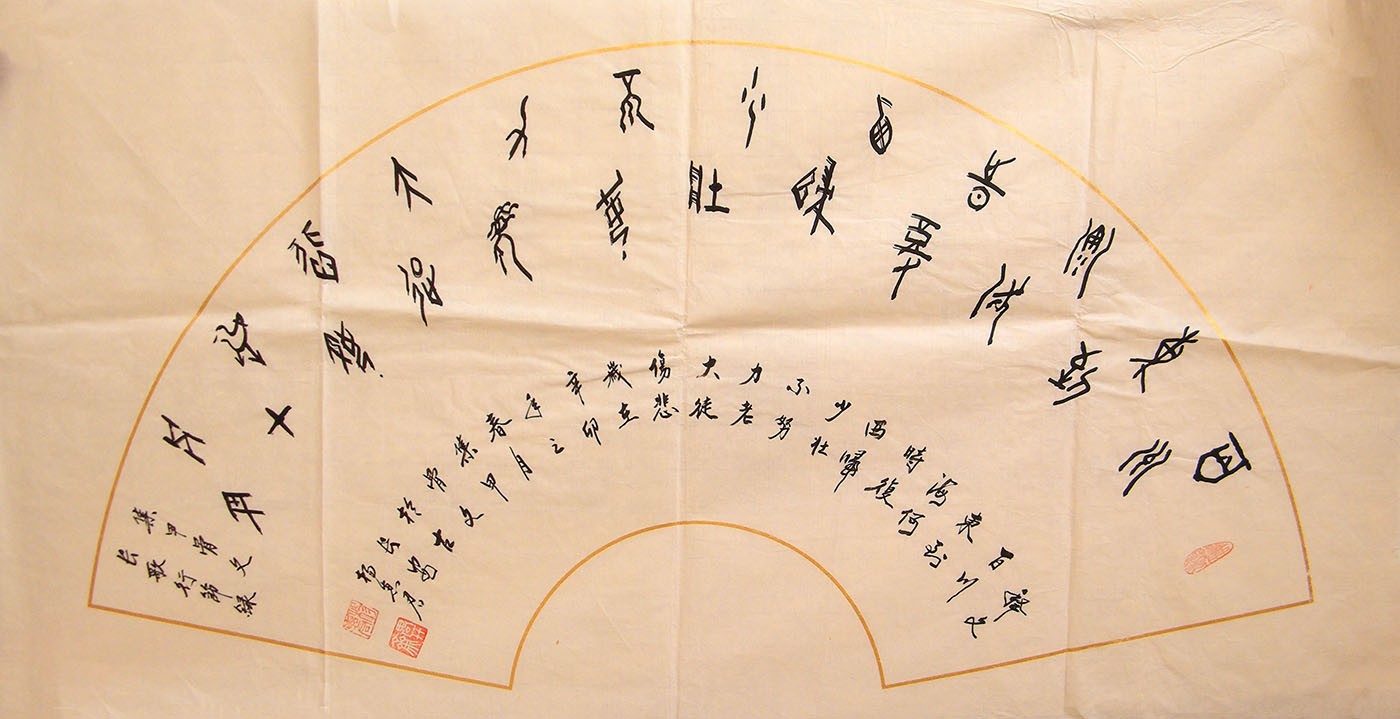 百川
東到
海何
時復
西歸
少壯
不努
力老
大徒
傷悲
集甲骨文
长歌行節錄
百川
東到
海何
時復
西歸
少壯
不努
力老
大徒
傷悲
歲在
辛卯
年之
春月
集甲
骨文
於古
长安